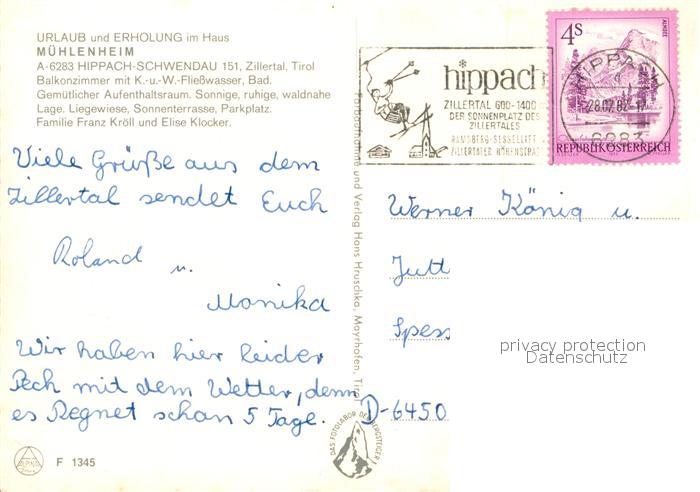 URLAUB und ERHOLUNG im Haus
MÜHLENHEIM
A-6283 HIPPACH-SCHWENDAU 151, Zillertal, Tirol
Balkonzimmer mit K.-u.-W.-Fließwasser, Bad.
Gemütlicher Aufenthaltsraum. Sonnige, ruhige, waldnahe
Lage. Liegewiese, Sonnenterrasse, Parkplatz.
Familie Franz Kröll und Elise Klocker.
Viele Grüße aus dem
Zillertal sendet Euch
Roland u.
Monika
Wir haben hier leider
Pech mit dem Wetter, denn
es Regnet schon 5 Tage.
F 1345
Farbaufnahme und Verlag Hans Hruschka, Mayrhofen, Tirol
DAS FOTOLABOR DER BERGSTEIGER
hippach
ZILLERTAL 600-1400 m
DER SONNENPLATZ DES
ZILLERTALES
RAMSBERG-SESSELLIFT
ZILLERTALER HÖHENSTRASSE
HIPPACH
28.07.82-17
6283
4s
ALMSEE
REPUBLIK ÖSTERREICH
Werner König u.
Jutt
Spess
D-6450
privacy protection
Datenschutz